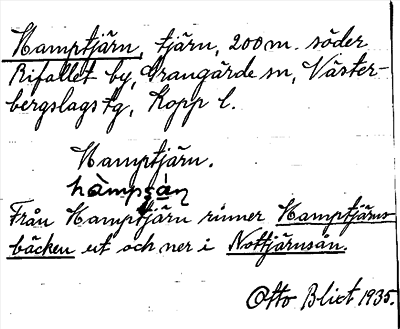 Hamptjärn, tjärn, 200 m. söder
Rifallet by, Grangärde sn, Väster-
bergslags tg, Kopp l.
Hamptjärn.
hàmpṣán
Från Hamptjärn rinner Hamptjärns-
bäcken ut och ner i Nottjärnsån.
Otto Blixt 1935.